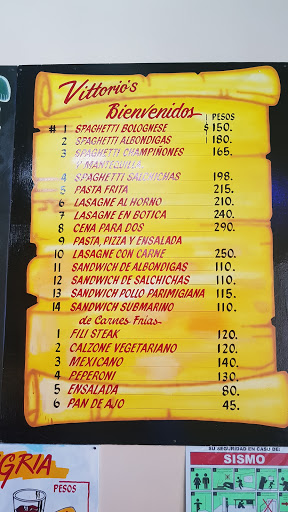 Vittorio's
Bienvenidos
PESOS
# 1 SPAGHETTI BOLOGNESE $150.
2 SPAGHETTI ALBONDIGAS 180.
3 SPAGHETTI CHAMPIÑONES 165.
Y MANTEQUILLA
4 SPAGHETTI SALCHICHAS 198.
5 PASTA FRITA 215.
6 LASAGNE AL HORNO 210.
7 LASAGNE EN BOTICA 240.
8 CENA PARA DOS 290.
9 PASTA, PIZZA Y ENSALADA
10 LASAGNE CON CARNE 250.
11 SANDWICH DE ALBONDIGAS 110.
12 SANDWICH DE SALCHICHAS 110.
13 SANDWICH POLLO PARIMIGIANA 115.
14 SANDWICH SUBMARINO 110.
de Carnes Frias
1 FILI STEAK 120.
2 CALZONE VEGETARIANO 120.
3 MEXICANO 140.
4 PEPERONI 130.
5 ENSALADA 80.
6 PAN DE AJO 45.
GRIA
PESOS
SU SEGURIDAD EN CASO DE:
SISMO